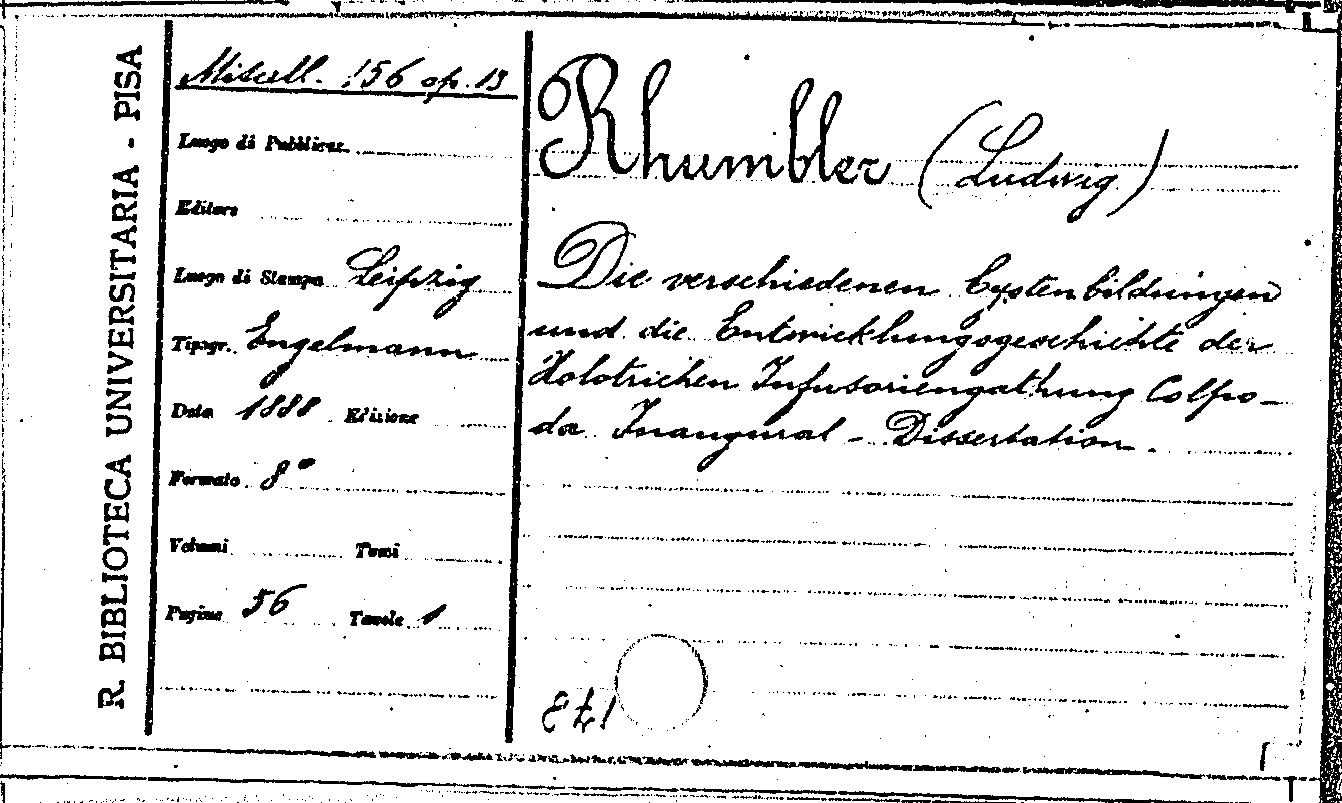 R. BIBLIOTECA UNIVERSITARIA - PISA
Miscell. 156 op. 13
Luogo di Pubblicaz.
Editore
Luogo di Stampa Leipzig
Tipogr. Engelmann
Data 1888 Edizione
Formato 8°
Volumi Tomi
Pagine 56 Tavole 1
Rhumbler (Ludwig)
Die verschiedenen Cystenbildungen
und die Entwicklungsgeschichte der
Holotrichen Infusoriengattung Colpo-
da Inaugural - Dissertation.